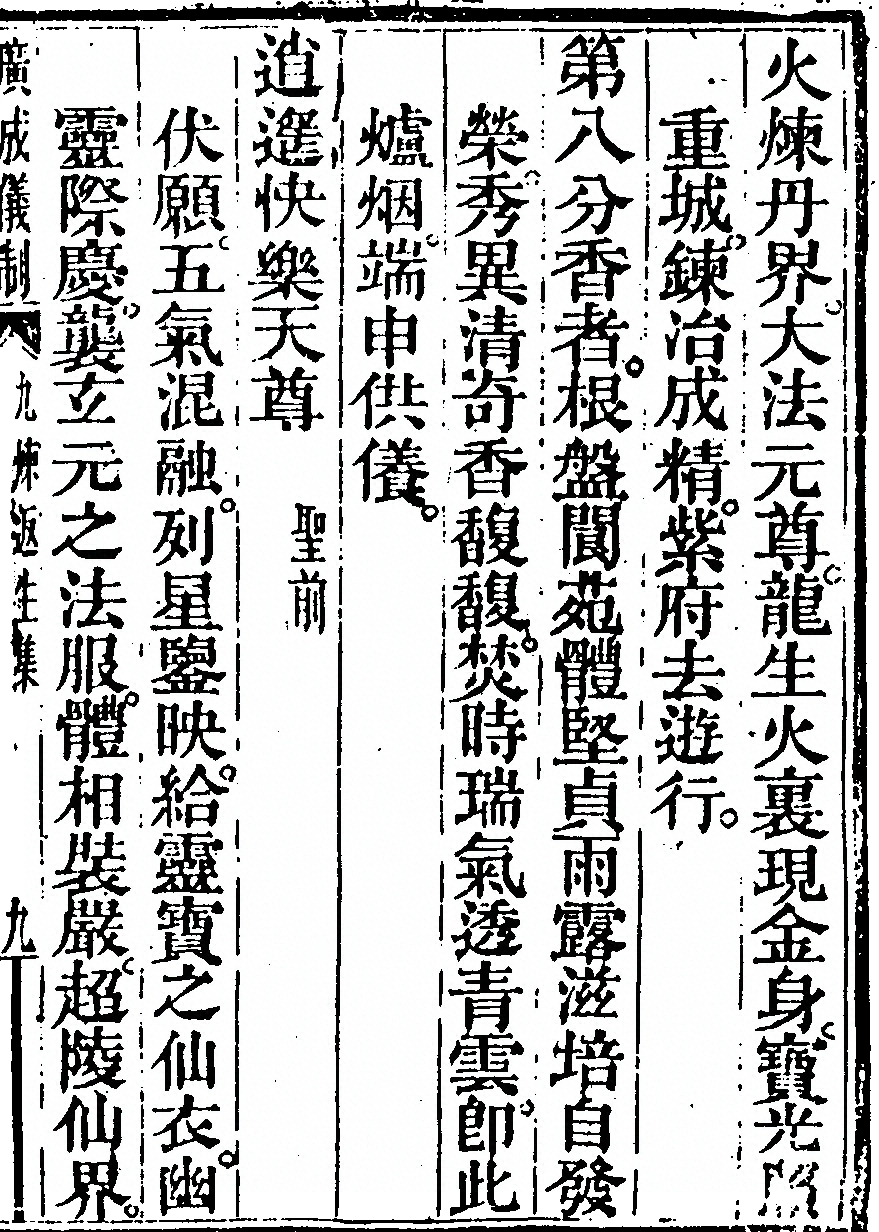 火煉丹界大法元尊龍生火裏現金身寶光照
重城鍊冶成精紫府去遊行。
第八分香者。根盤閬苑體堅貞雨露滋培自發
榮秀異清奇香馥馥。焚時瑞氣透青雲即此
爐烟端申供儀。
逍遥快樂天尊 聖前
伏願五氣混融。列星鑒映。給靈寶之仙衣。幽
靈際慶襲玄元之法服。體相裝嚴超陵仙界。
廣成儀制 九煉返生集 九